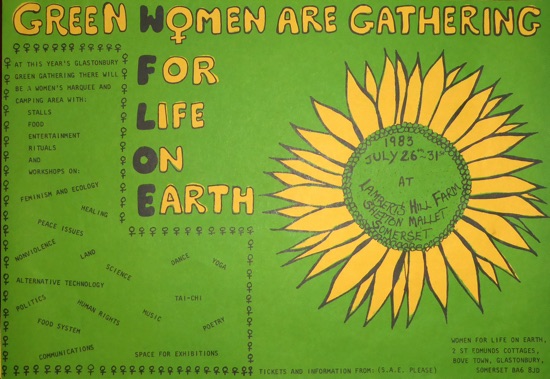 GREEN WOMEN ARE GATHERING
FOR
LIFE
ON
EARTH
W
F
L
O
E
AT THIS YEAR'S GLASTONBURY
GREEN GATHERING THERE WILL
BE A WOMEN'S MARQUEE AND
CAMPING AREA WITH:
STALLS
FOOD
ENTERTAINMENT
RITUALS
AND
WORKSHOPS ON:
FEMINISM AND ECOLOGY
HEALING
PEACE ISSUES
NONVIOLENCE
LAND
SCIENCE
DANCE
YOGA
ALTERNATIVE TECHNOLOGY
POLITICS
HUMAN RIGHTS
MUSIC
TAI-CHI
POETRY
FOOD SYSTEM
COMMUNICATIONS
SPACE FOR EXHIBITIONS
1983
JULY 26TH-31ST
AT
LAMBERTS HILL FARM
SHEPTON MALLET
SOMERSET
TICKETS AND INFORMATION FROM: (S.A.E. PLEASE)
WOMEN FOR LIFE ON EARTH,
2 ST EDMUNDS COTTAGES,
BOVE TOWN, GLASTONBURY,
SOMERSET BA6 8JD